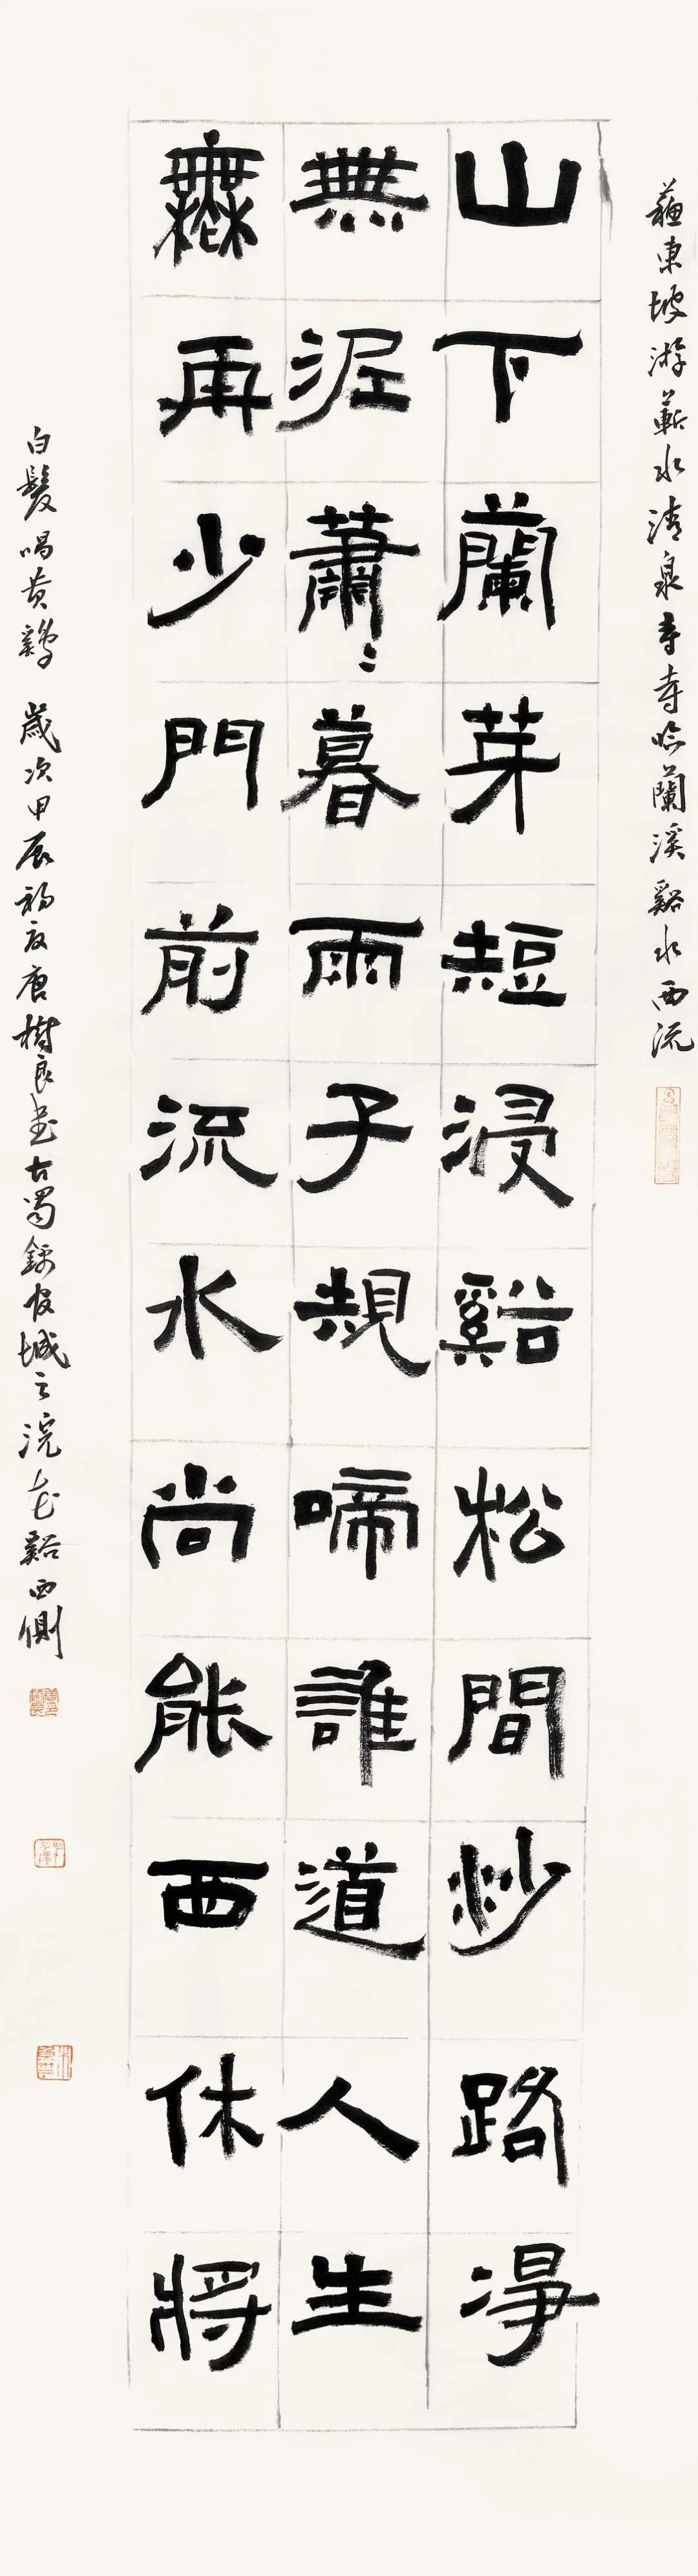 蘓東坡游蘄水清泉寺寺临蘭溪谿水西流
山下蘭芽短浸谿松間沙路淨
無泥蕭〻暮雨子規啼誰道人生
無再少門前流水尚能西休將
白髮唱黄鷄 歲次甲辰初夏唐樹良書古蜀錦官城之浣花谿西側